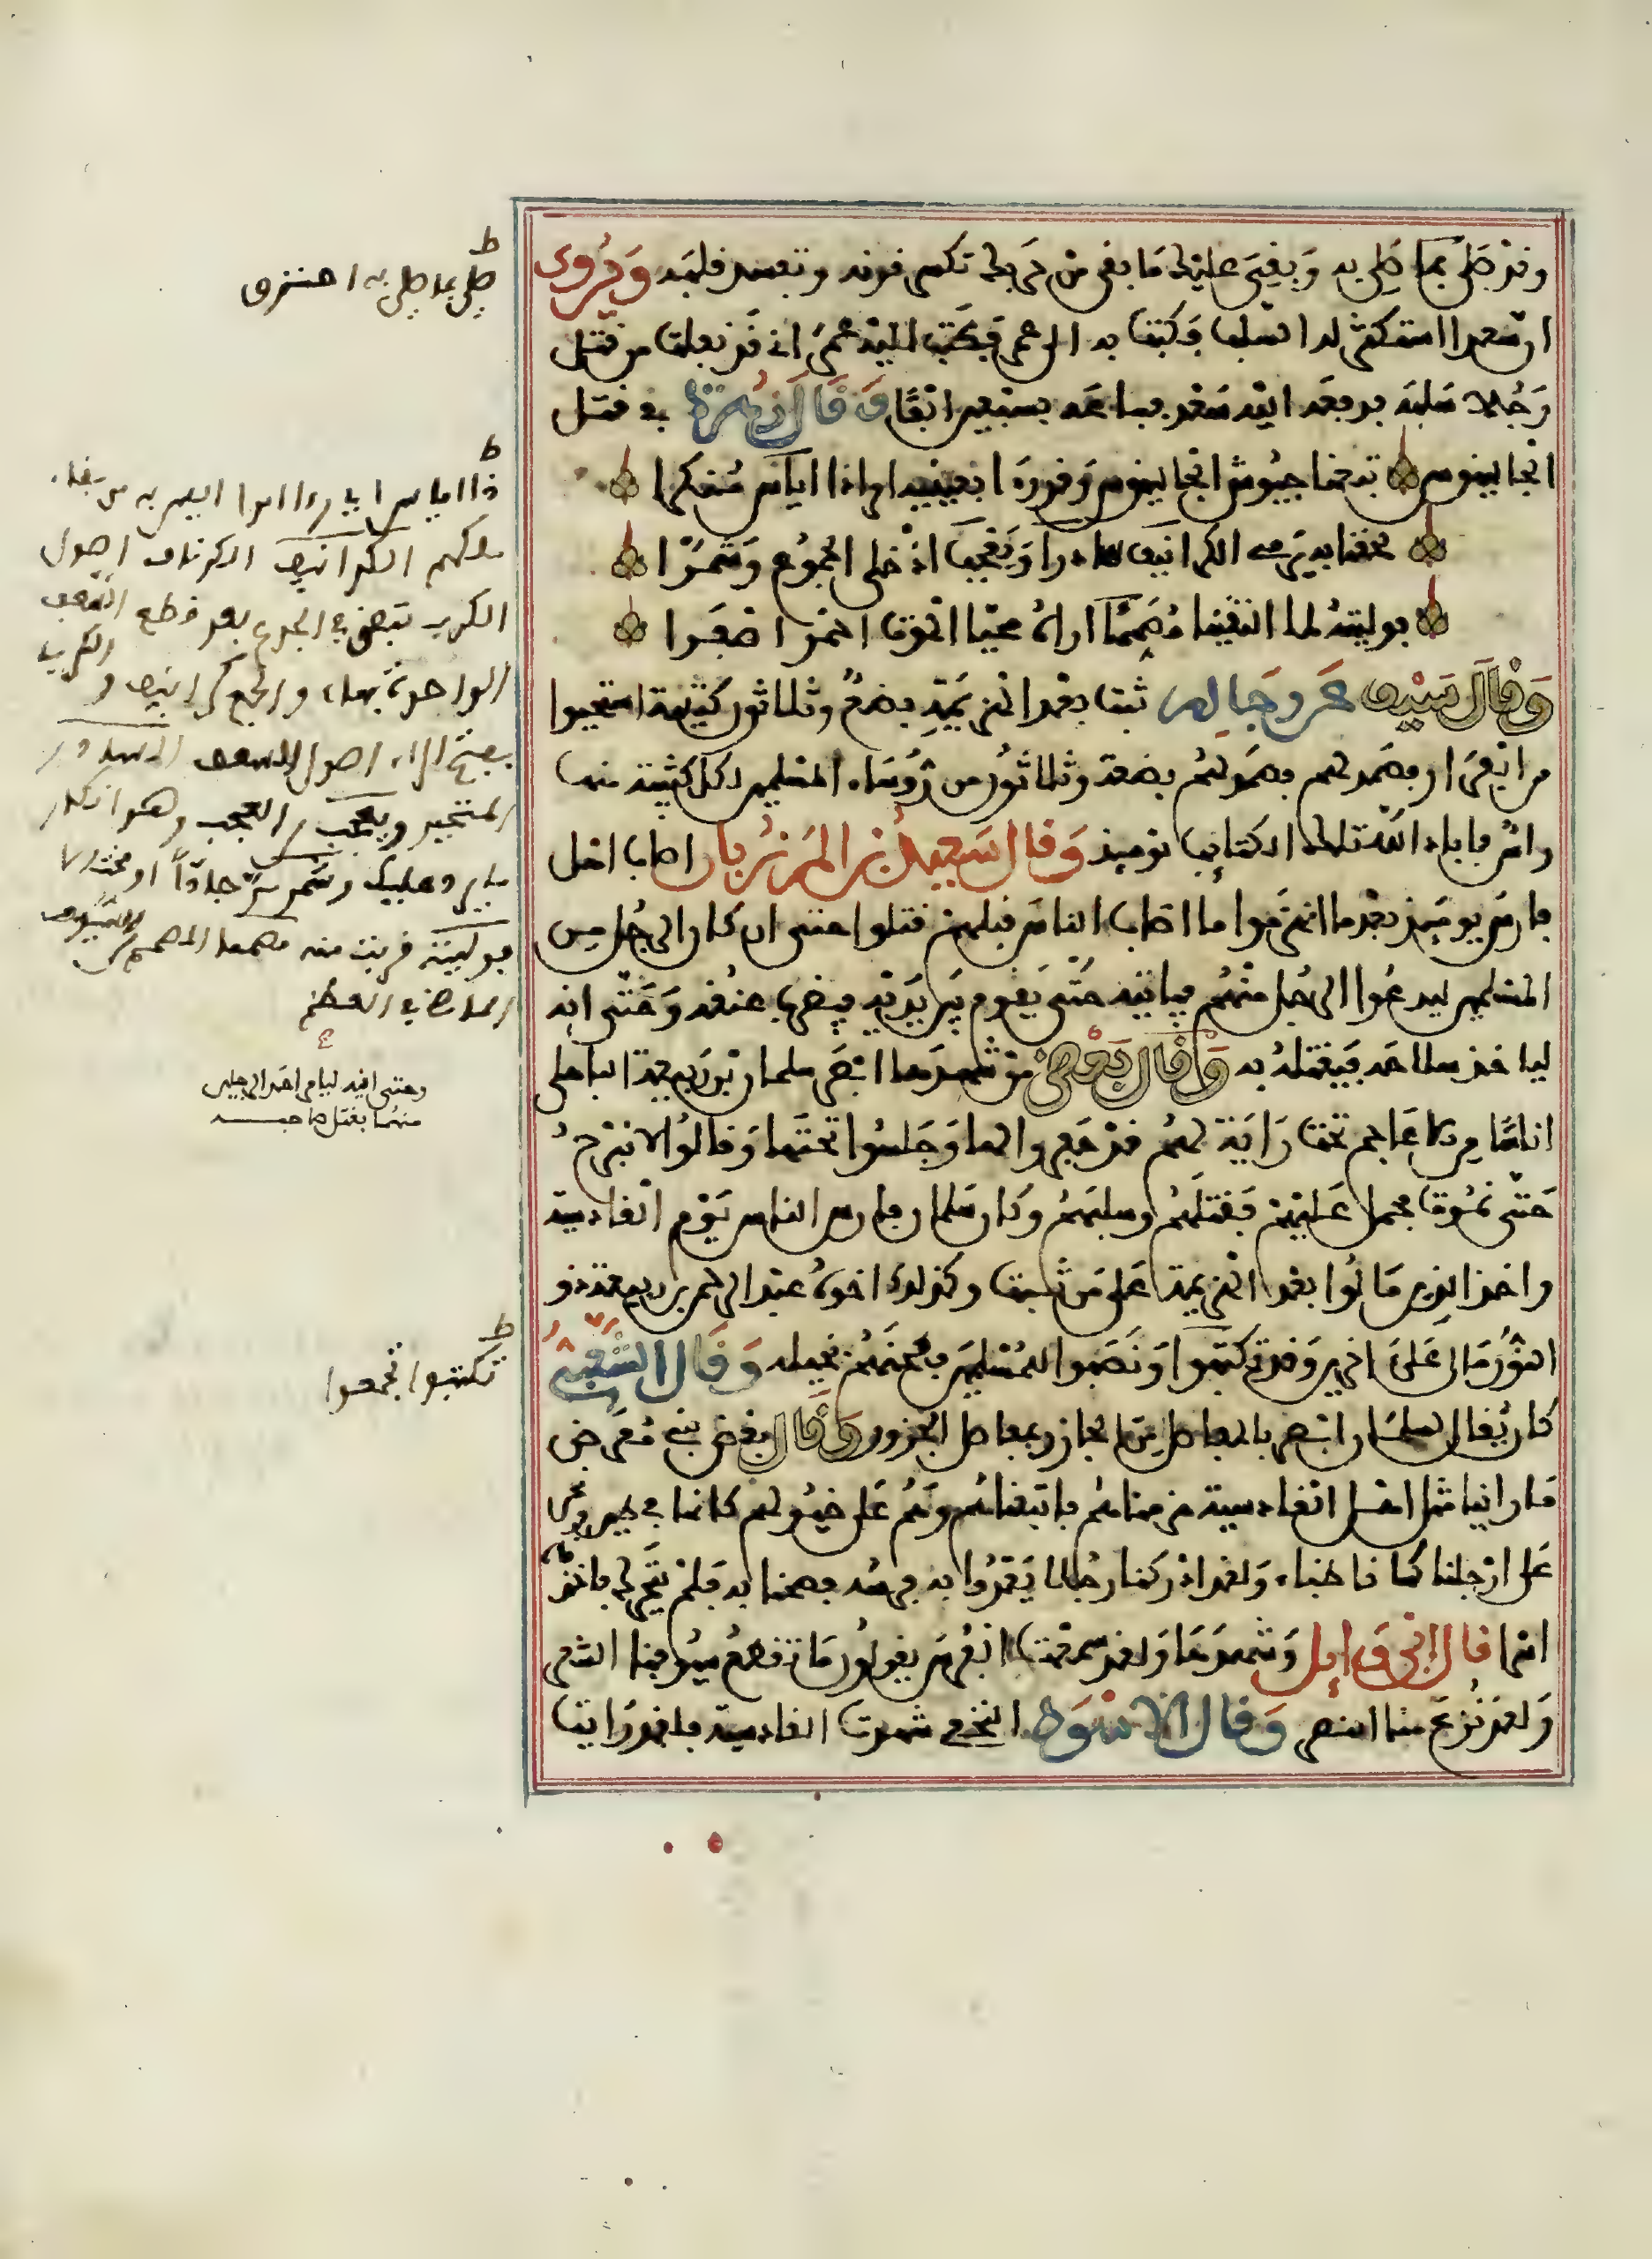 وقد صَلِيَ بما صلي به وبقي عليك ما بقي من حربك تكسر قوته وتفسد قلبه ويُروى
ان سعدا استكثر له السلب فكتب به الى عمر فكتب اليه عمر اني قد نفلت من قتل
رجلا سلبه فدفعه اليه سعد فباعه بسبعين الفا وقال زهرة في قتل
الجالينوس تبعنا جيوش الجالينوس وقوده اذا الياس منكرا
لحقنا به يرمي الكرانيف سادرا ويعجب اذ خلى الجموع وشمرا
فوليته لما التقينا مصمما اراه محيا الموت احمر اصفرا
وقال سيف عن رجاله ثبت بعد الهزيمة بضع وثلاثون كتيبة استحيوا
من الفرار فصمد لهم بضعة وثلاثون من رؤساء المسلمين لكل كتيبة منها
راس فاباد الله تلك الكتايب يوميذ وقال سعيد بن المرزبان اصاب اهل
فارس يوميذ بعدما انهزموا ما اصاب الناس قبلهم قتلوا حتى ان كان الرجل من
المسلمين ليدعوا الرجل منهم فياتيه حتى يقوم بين يديه فيضرب عنقه وحتى انه
لياخذ سلاحه فيقتله به وقال بعض من شهدها ابصر سلمان بن ربيعة الباهلي
اناسا من الاعاجم تحت راية لهم قد حفروا لها وجلسوا تحتها وقالوا لا نبرح
حتى نموت فحمل عليهم فقتلهم وسلبهم وكان سلمان فارس الناس يوم القادسية
واحد الذين مالوا بعد الهزيمة على من ثبت وكذلك اخوه عبد الرحمن بن ربيعة ذو
النور مال على اخرين قد تكتبوا ونصبوا للمسلمين فطحنهم بخيله وقال الشعبي
كان يقال لسلمان ابصر بالمفاصل من الجازر بمفاصل الجزور وقال بعض بني معرض
ما راينا مثل اهل القادسية هزمناهم فاتبعناهم وهم على خيولهم كانها في طين ونحن
على ارجلنا كاننا ظباء ولقد ادركنا رجلا يعدوا به فرسه فصحنا به فلم يتحرك
اسرا قال ابو وايل وشهدها ولقد سمعت القوم يقولون ما تقطع سيوفنا الشعر
ولقد نزع منا النصر وقال الاسود النخعي شهدت القادسية فلقد رايت
ط
صلي بما صلي به احترق
ط
ملكهم الكرانيف الكرناف اصول
الكرب تبقى في الجذع بعد قطع السعف
الواحدة بهاء والجمع كرانيف و
بفتح الراء اصول السعف السادر
المتحير ويعجب العجب وهو انكار
ما يرد عليك وشمر مر جادا او مختالا
فوليته قربت منه مصمما المصمم السيف
الماضي في العظم
وحتى انه ليامر احد الرجلين
منهما بقتل صاحبه
ط
تكتبوا تجمعوا